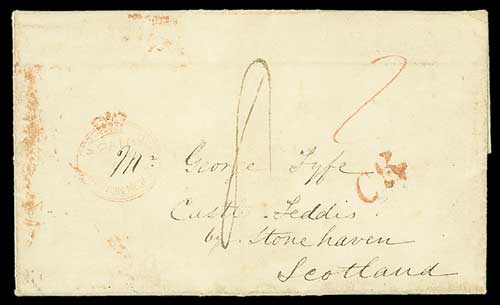 Mr George Fyfe
Castle Feddis
by Stonehaven
Scotland